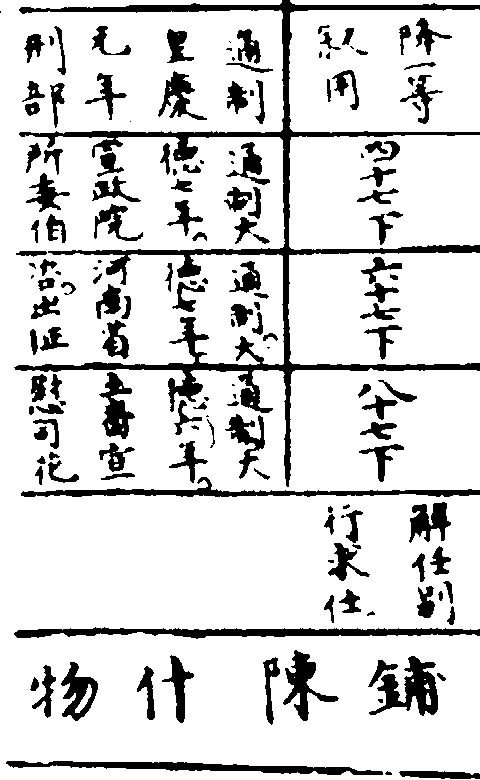 降一等
叙用
通制
皇慶
元年
刑部
四十七下
通制大
德七年
宣政院
所委伯
六十七下
通制大
德七年
河南省
咨出征
八十七下
通制大
德六年
宣
慰司花
解任別
行求仕
鋪陳什物